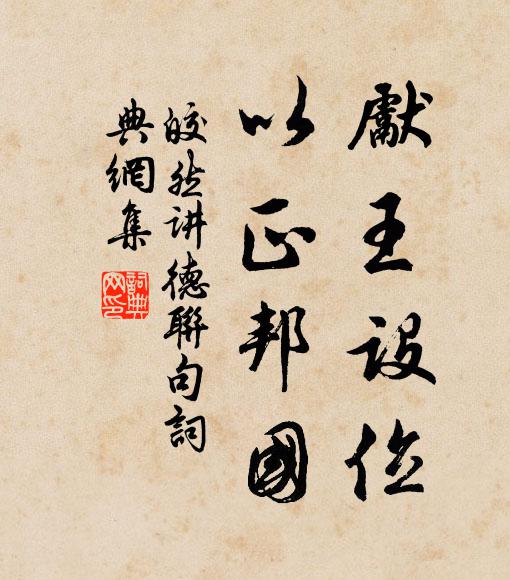 獻王設位
以正邦國
皎然讲德聯句詞
典網集
詞典
网印